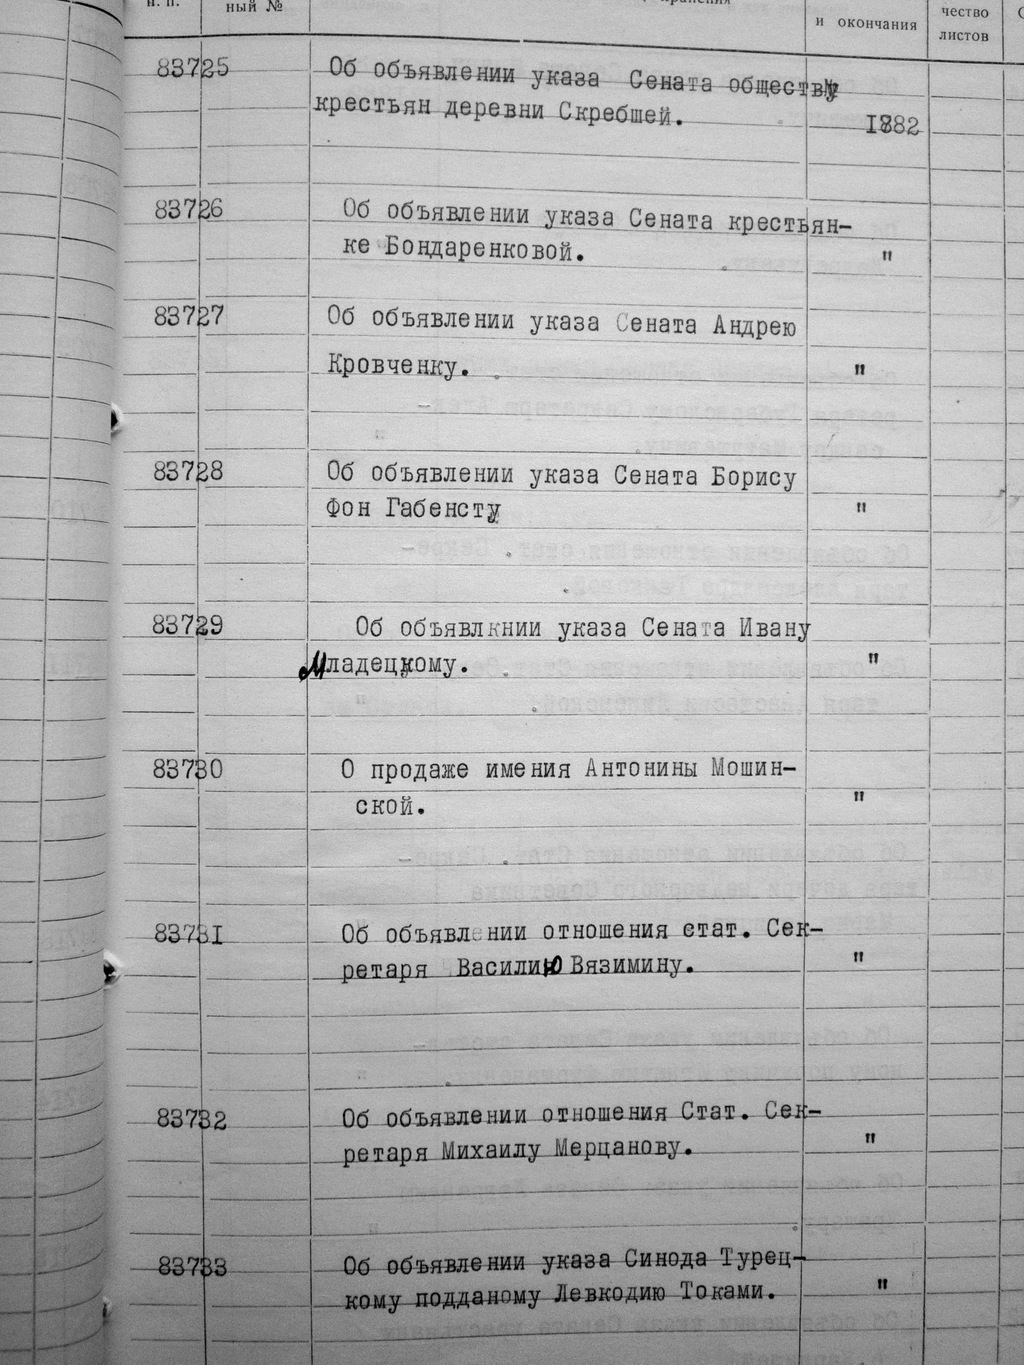 н. п.
ный №
хранения
и окончания
чество
листов
83725
Об объявлении указа Сената обществу
крестьян деревни Скребшей.
1882
83726
Об объявлении указа Сената крестьян-
ке Бондаренковой.
"
83727
Об объявлении указа Сената Андрею
Кровченку.
"
83728
Об объявлении указа Сената Борису
Фон Габенсту
"
83729
Об объявлкнии указа Сената Ивану
Младецкому.
"
83730
О продаже имения Антонины Мошин-
ской.
"
83731
Об объявлении отношения стат. Сек-
ретаря Василию Вязимину.
"
83732
Об объявлении отношения Стат. Сек-
ретаря Михаилу Мерцанову.
"
83733
Об объявлении указа Синода Турец-
кому подданому Левкодию Токами.
"